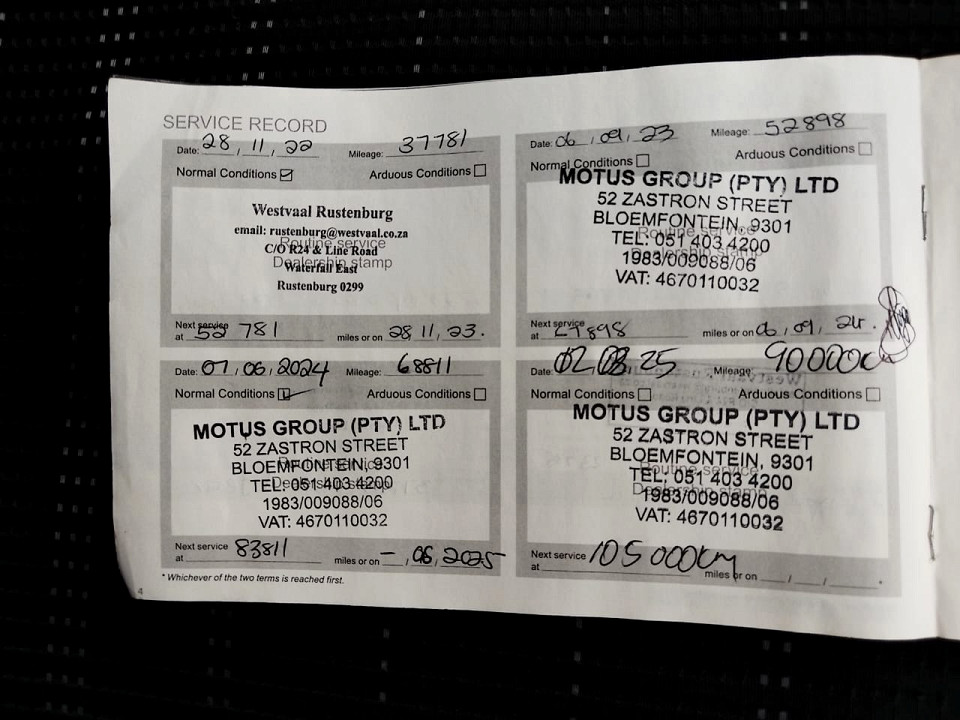 SERVICE RECORD
Date: 28, 11, 22 Mileage: 37781
Normal Conditions Arduous Conditions
Westvaal Rustenburg
email: rustenburg@westvaal.co.za
Routine service
C/O R24 & Line Road
Dealership stamp
Waterfall East
Rustenburg 0299
Next service at 52 781 miles or on 28 11, 23.
Date: 06, 09, 23 Mileage: 52898
Normal Conditions Arduous Conditions
MOTUS GROUP (PTY) LTD
52 ZASTRON STREET
BLOEMFONTEIN, 9301
Routine service
TEL: 051 403 4200
Dealership stamp
1983/009088/06
VAT: 4670110032
Next service at miles or on 06, 09, 24.
Date: 07, 06, 2024 Mileage: 68811
Normal Conditions Arduous Conditions
MOTUS GROUP (PTY) LTD
52 ZASTRON STREET
BLOEMFONTEIN, 9301
Routine service
TEL: 051 403 4200
Dealership stamp
1983/009088/06
VAT: 4670110032
Next service at 83811 miles or on –, 06, 2025
Date: 02, 03, 25 Mileage: 90000
Normal Conditions Arduous Conditions
MOTUS GROUP (PTY) LTD
52 ZASTRON STREET
BLOEMFONTEIN, 9301
Routine service
TEL: 051 403 4200
Dealership stamp
1983/009088/06
VAT: 4670110032
Next service at 105 000km miles or on / /
* Whichever of the two terms is reached first.
4